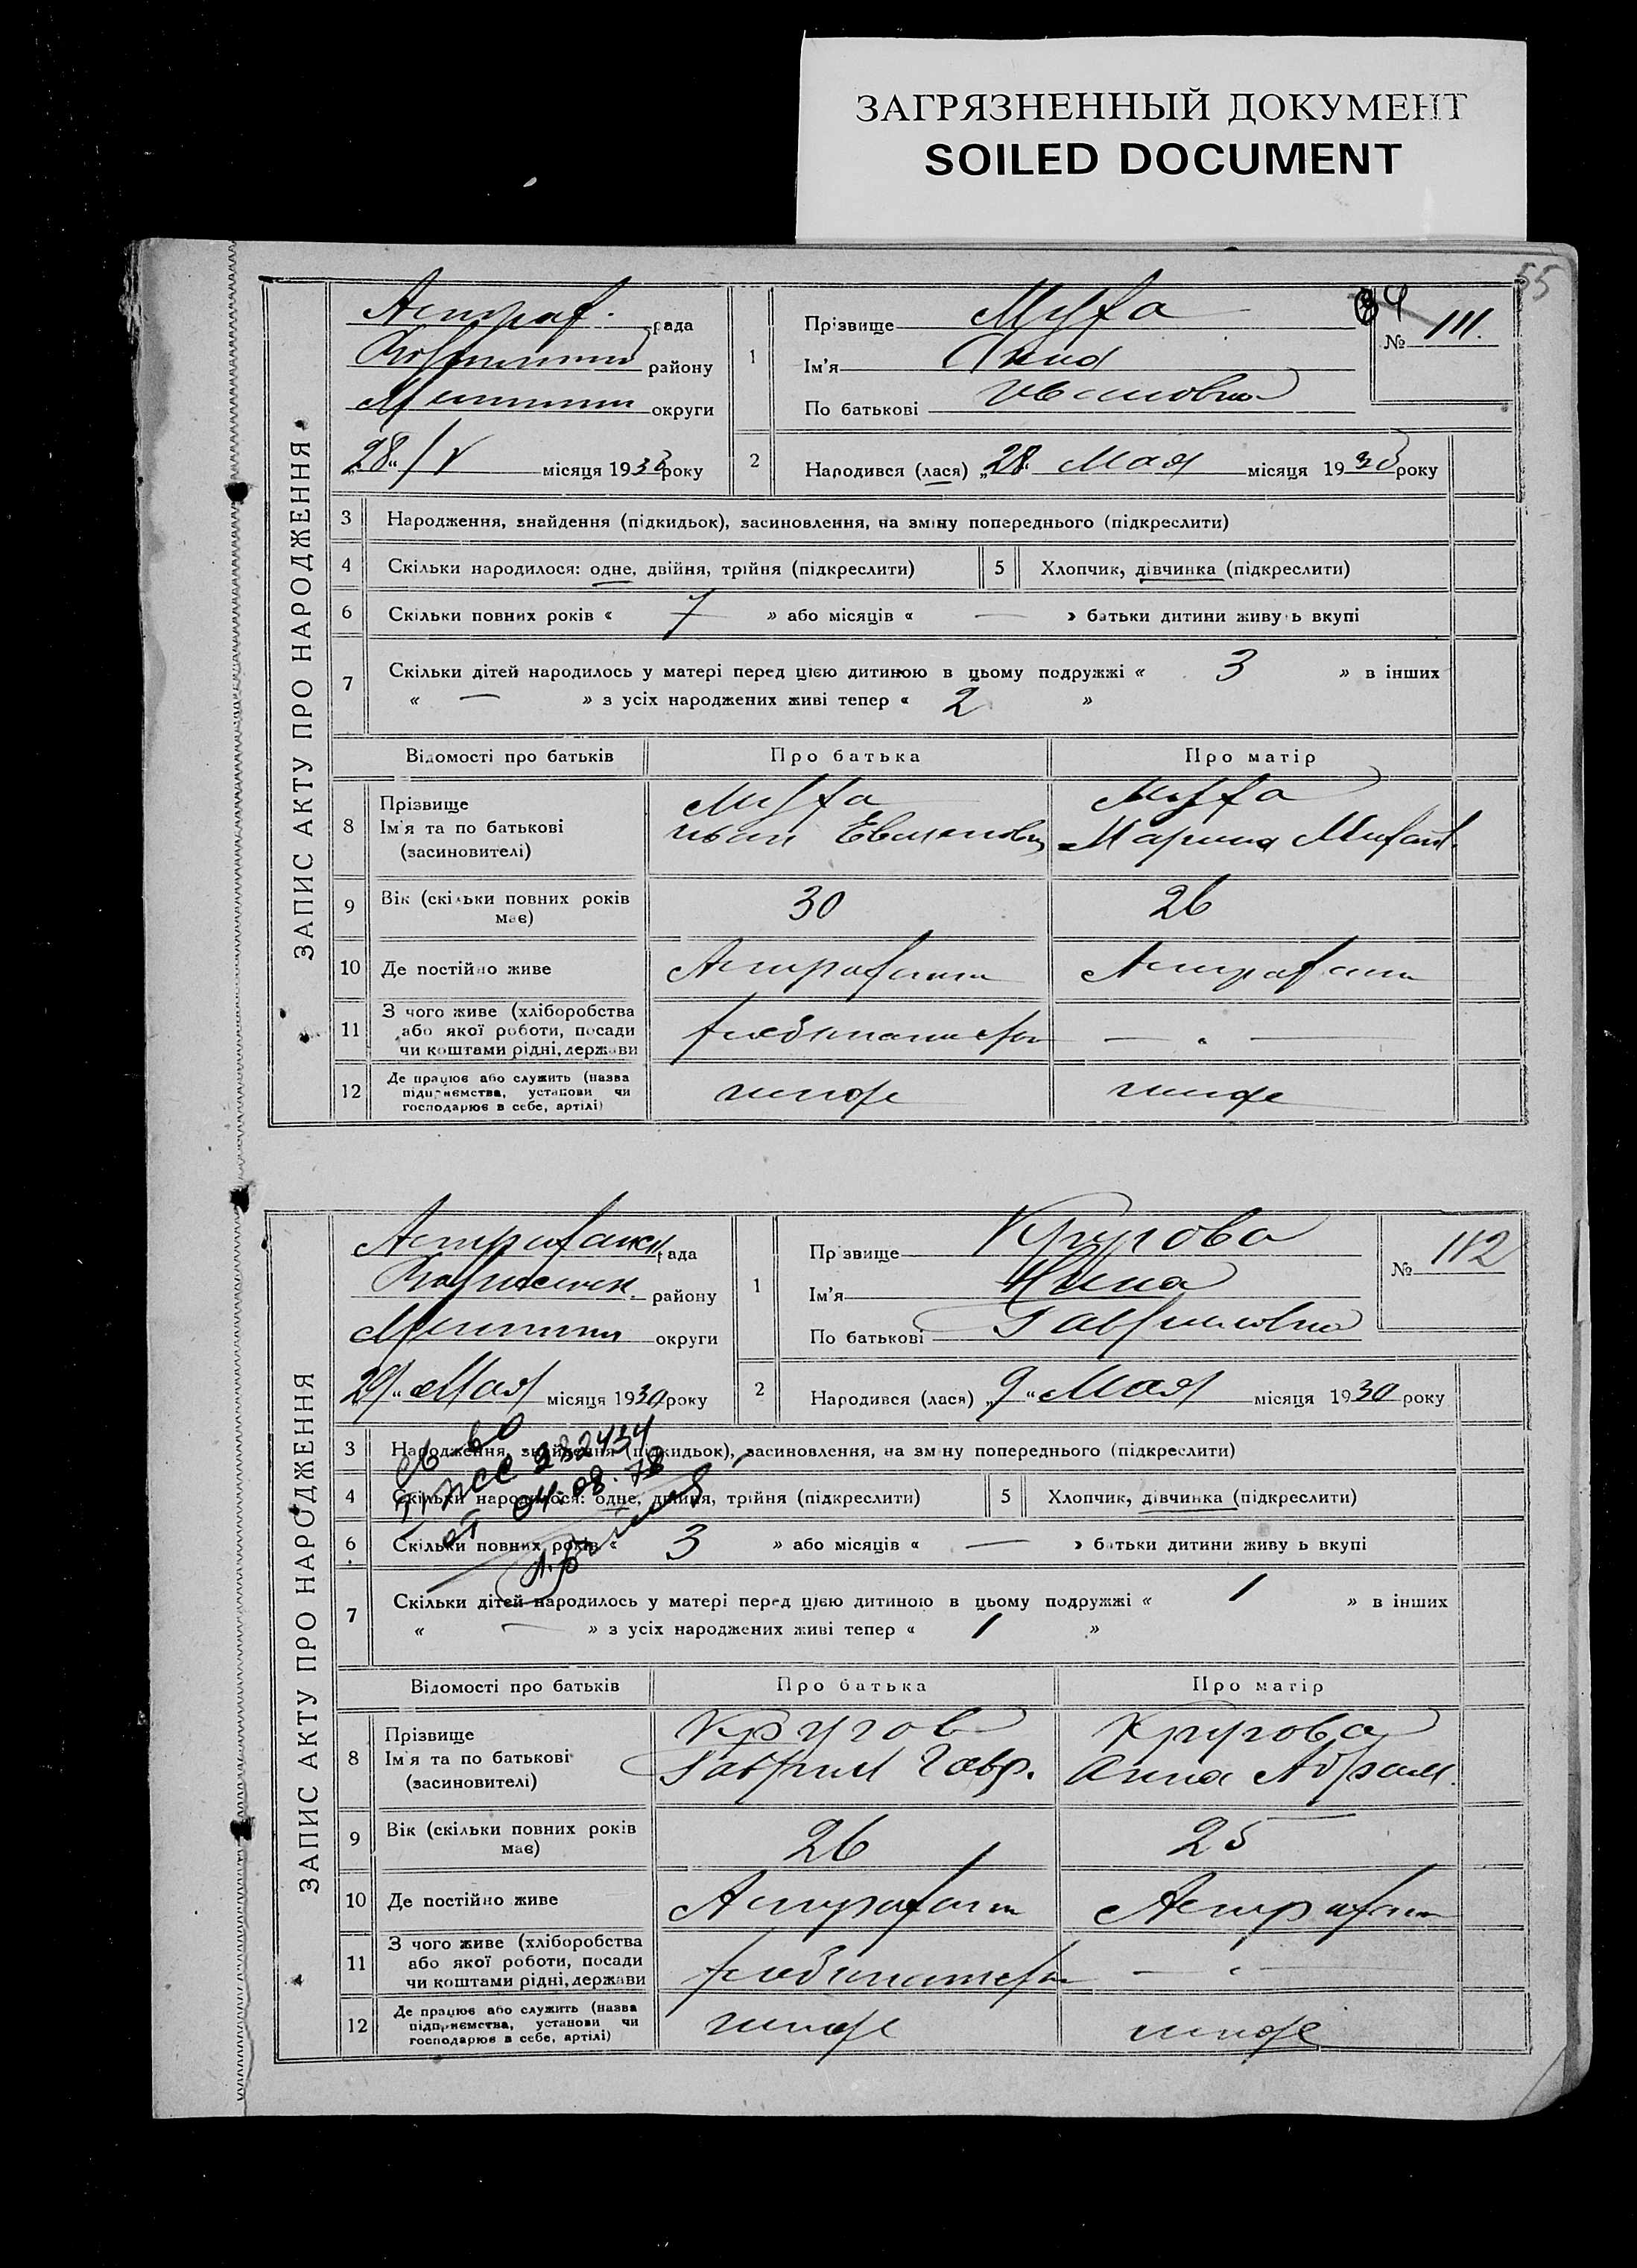 ЗАГРЯЗНЕННЫЙ ДОКУМЕНТ
SOILED DOCUMENT
55
ЗАПИС АКТУ ПРО НАРОДЖЕННЯ
Астрах. рада
району
округи
„28“ /V місяця 1930 року
1
Прізвище Муха
Ім'я Анна
По батькові Ивановна
№ 111.
2
Народився (лася) „28“ Мая місяця 1930 року
3 Народження, знайдення (підкидьок), засиновлення, на зміну попереднього (підкреслити)
4 Скільки народилося: одне, двійня, трійня (підкреслити) 5 Хлопчик, дівчинка (підкреслити)
6 Скільки повних років « 7 » або місяців « — » батьки дитини живуть вкупі
7 Скільки дітей народилось у матері перед цією дитиною в цьому подружжі « 3 » в інших
« — » з усіх народжених живі тепер « 2 »
Відомості про батьків Про батька Про матір
8 Прізвище Муха Муха
Ім'я та по батькові Иван Марина Михайл.
(засиновителі)
9 Вік (скільки повних років має) 30 26
10 Де постійно живе Астраханка Астраханка
11 З чого живе (хліборобства або якої роботи, посади чи коштами рідні, держави хлебопашество — " —
12 Де працює або служить (назва підприємства, установи чи господарює в себе, артілі)
ЗАПИС АКТУ ПРО НАРОДЖЕННЯ
Астраханск. рада
району
округи
„29“ Мая місяця 1930 року
1
Прізвище Кругова
Ім'я Нина
По батькові Гавриловна
№ 112
2
Народився (лася) „9“ Мая місяця 1930 року
3 Народження, знайдення (підкидьок), засиновлення, на зміну попереднього (підкреслити)
382434
от 04.08.78
4 Скільки народилося: одне, двійня, трійня (підкреслити) 5 Хлопчик, дівчинка (підкреслити)
6 Скільки повних років « 3 » або місяців « — » батьки дитини живуть вкупі
7 Скільки дітей народилось у матері перед цією дитиною в цьому подружжі « 1 » в інших
« — » з усіх народжених живі тепер « 1 »
Відомості про батьків Про батька Про матір
8 Прізвище Кругов Кругова
Ім'я та по батькові Гаврил Гавр. Анна Абрам.
(засиновителі)
9 Вік (скільки повних років має) 26 25
10 Де постійно живе Астраханка Астраханка
11 З чого живе (хліборобства або якої роботи, посади чи коштами рідні, держави хлебопашество — " —
12 Де працює або служить (назва підприємства, установи чи господарює в себе, артілі)